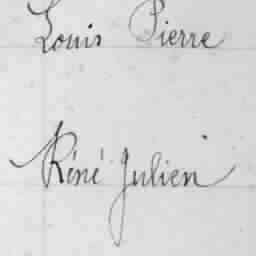 Louis Pierre
Réné Julien